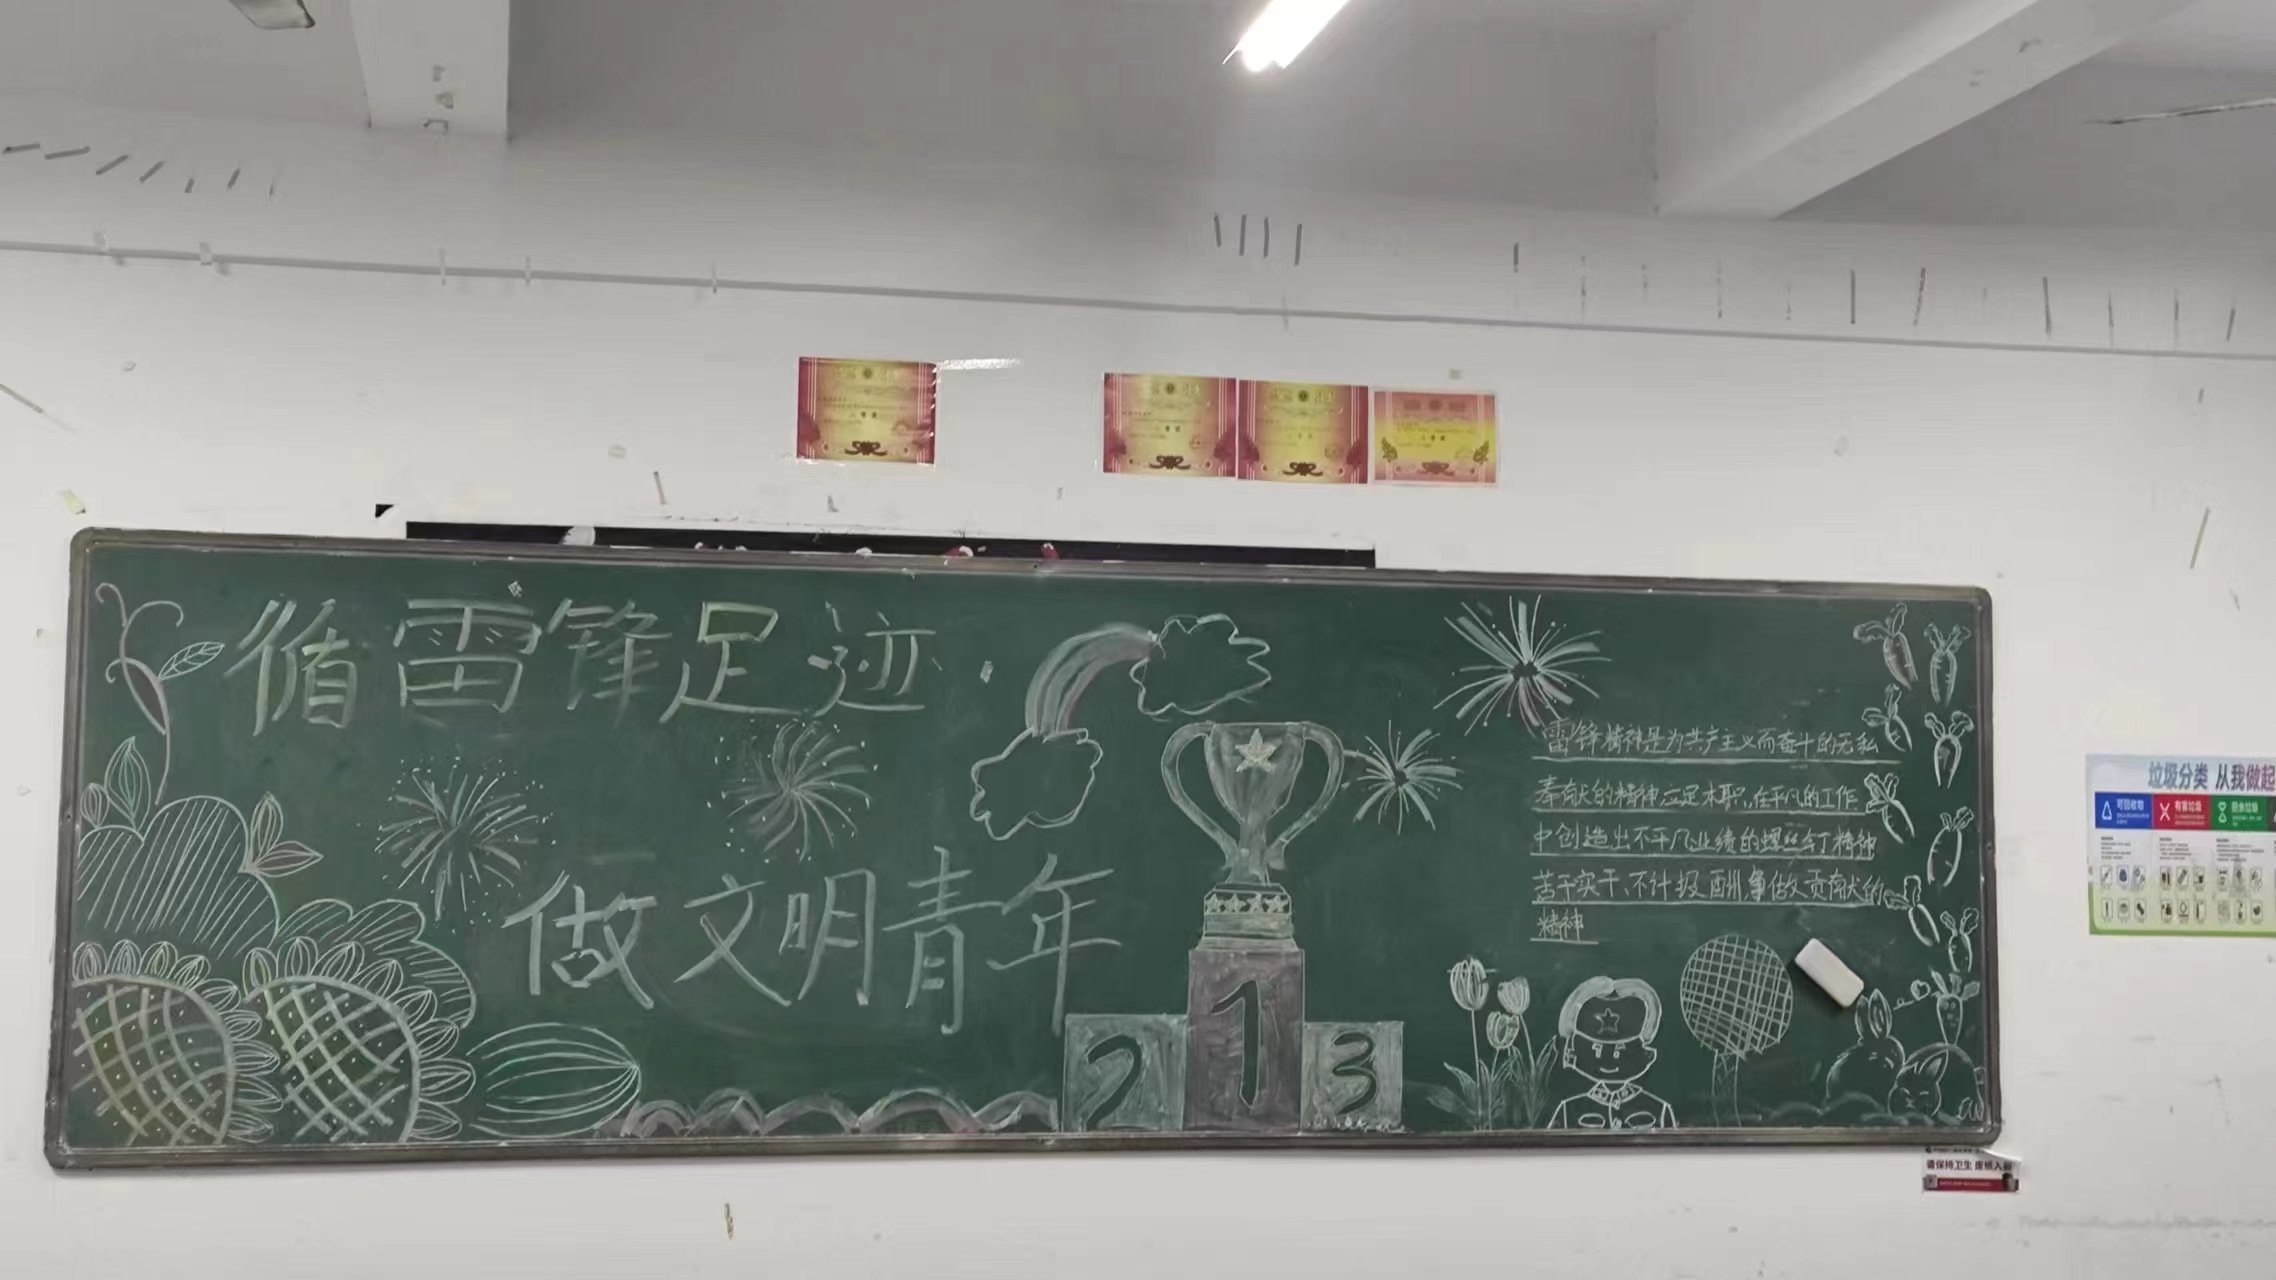 循雷锋足迹
做文明青年
2
1
3
雷锋精神是为共产主义而奋斗的无私
奉献的精神立足本职、在平凡的工作
中创造出不平凡业绩的螺丝钉精神
苦干实干、不计报酬争做贡献的
精神
垃圾分类 从我做起
可回收物
有害垃圾
厨余垃圾
请保持卫生